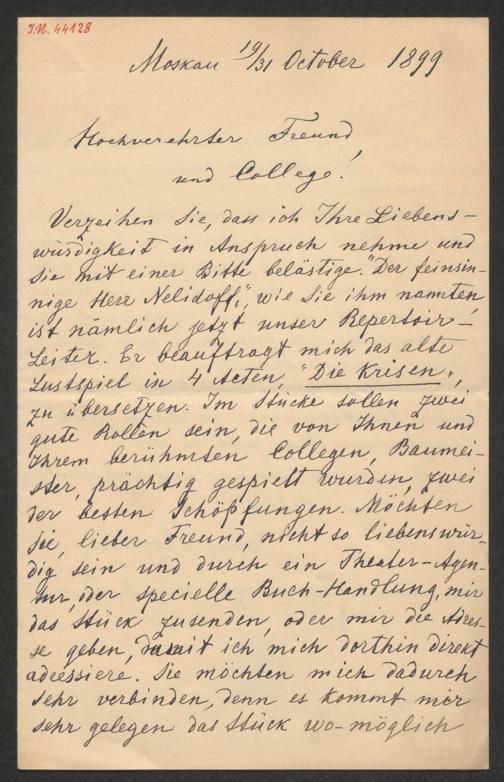 J.N. 44128
Moskau 19/31 October 1899
Hochverehrter Freund,
und College!
Verzeihen Sie, dass ich Ihre Liebens-
würdigkeit in Anspruch nehme und
Sie mit einer Bitte belästige. "Der feinsin-
nige Herr Nelidoff", wie Sie ihm nannten,
ist nämlich jetzt unser Repertoir-
Leiter. Er beauftragt mich das alte
Lustspiel in 4 Acten, "Die Krisen",
zu übersetzen. Im Stücke sollen zwei
gute Rollen sein, die von Ihnen und
Ihrem berühmten Collegen, Baumei-
ster, prächtig gespielt wurden, zwei
der besten Schöpfungen. Möchten
Sie, lieber Freund, nicht so liebenswür-
dig sein und durch ein Theater-Agen-
tur, oder specielle Buch-Handlung, mir
das Stück zusenden, oder mir die Adres-
se geben, damit ich mich dorthin direkt
adressiere. Sie möchten mich dadurch
sehr verbinden, denn es kommt mir
sehr gelegen das Stück wo-möglich